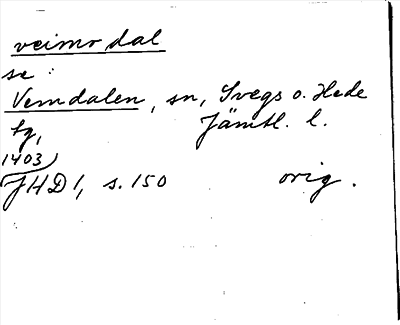 veimo dal
se :
Vemdalen, sn, Svegs o. Hede
tg, Jämtl. l.
1403
JHD 1, s. 150 orig.